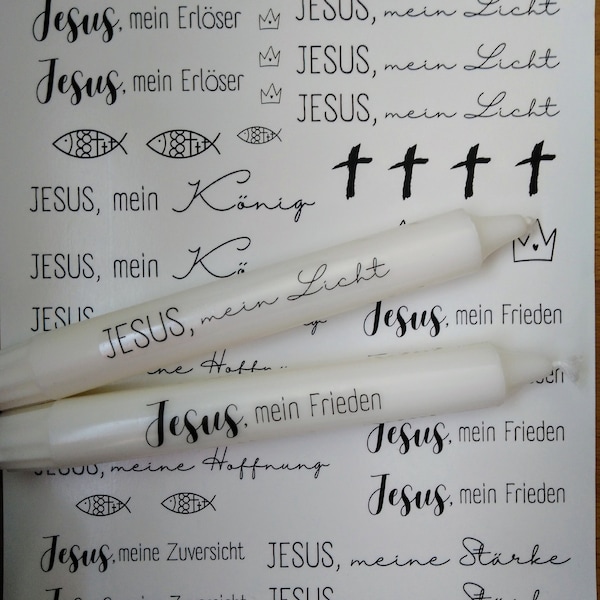 Jesus, mein Erlöser
JESUS, mein Licht
Jesus, mein Erlöser
JESUS, mein Licht
JESUS, mein Licht
JESUS, mein König
JESUS, mein Kö
JESUS,
JESUS, mein Licht
Jesus, mein Frieden
ne Hoffnu
Jesus, mein Frieden
Jesus, mein Frieden
JESUS, meine Hoffnung
Jesus, mein Frieden
Jesus, meine Zuversicht
JESUS, meine Stärke